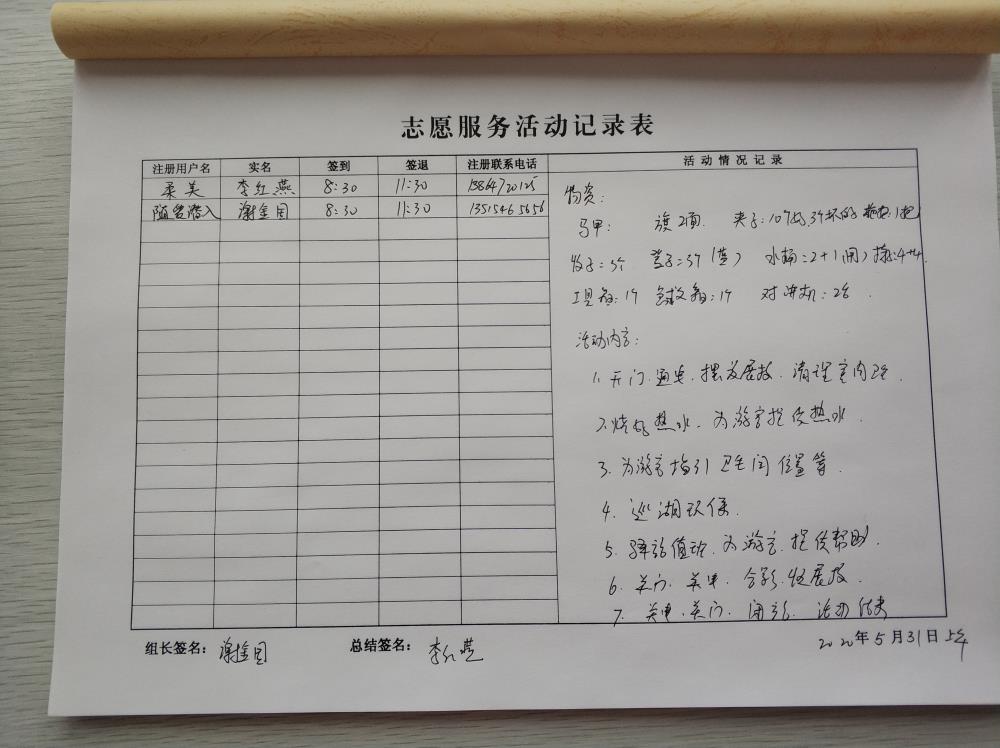 志愿服务活动记录表
注册用户名 实名 签到 签退 注册联系电话 活动情况记录
柔美 李红燕 8:30 11:30
随 入 谢金国 8:30 11:30 13515465656
物资:
马甲: 旗2面 夹子:10个好,3个坏的
3个 盖子:3个(蓝) 水桶:2+1(闲)
工具箱:1个 急救箱:1个 对讲机:2台.
活动内容:
1.开门.通电.摆放展板.清理室内卫生.
2.烧好热水.为游客提供热水.
3.为游客指引卫生间位置等.
4.巡湖环保.
5.驿站值班.为游客提供帮助.
6.关门.关电.合影.收展板.
7.关电.关门. 活动结束
组长签名: 谢金国 总结签名: 李红燕
2020年5月31日上午